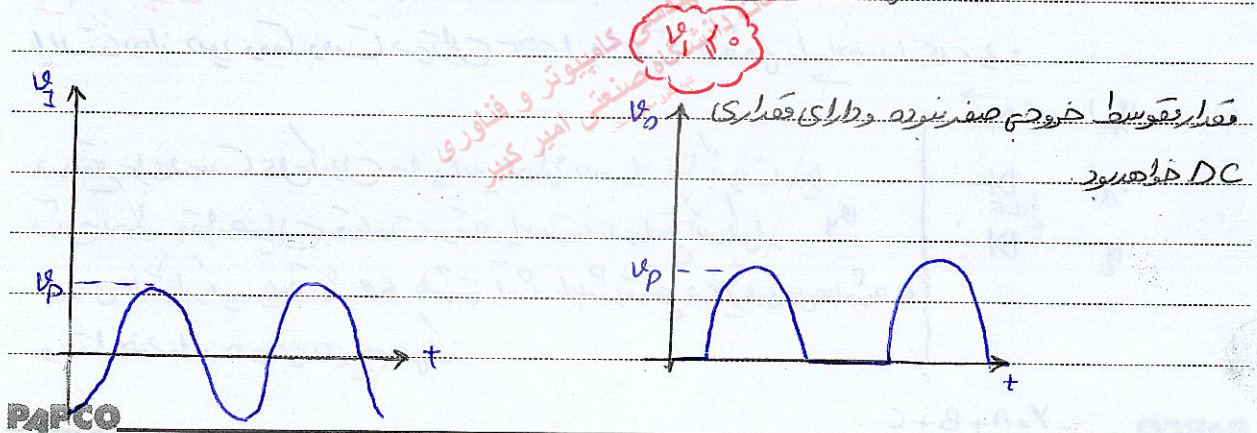 کامپیوتر و فناوری
دانشگاه صنعتی امیر کبیر
v_I
v_p
t
v_o
v_p
t
مقدار متوسط خروجی صفر نبوده و دارای مقداری
DC خواهد بود.
PAPCO
Y=A+B+C